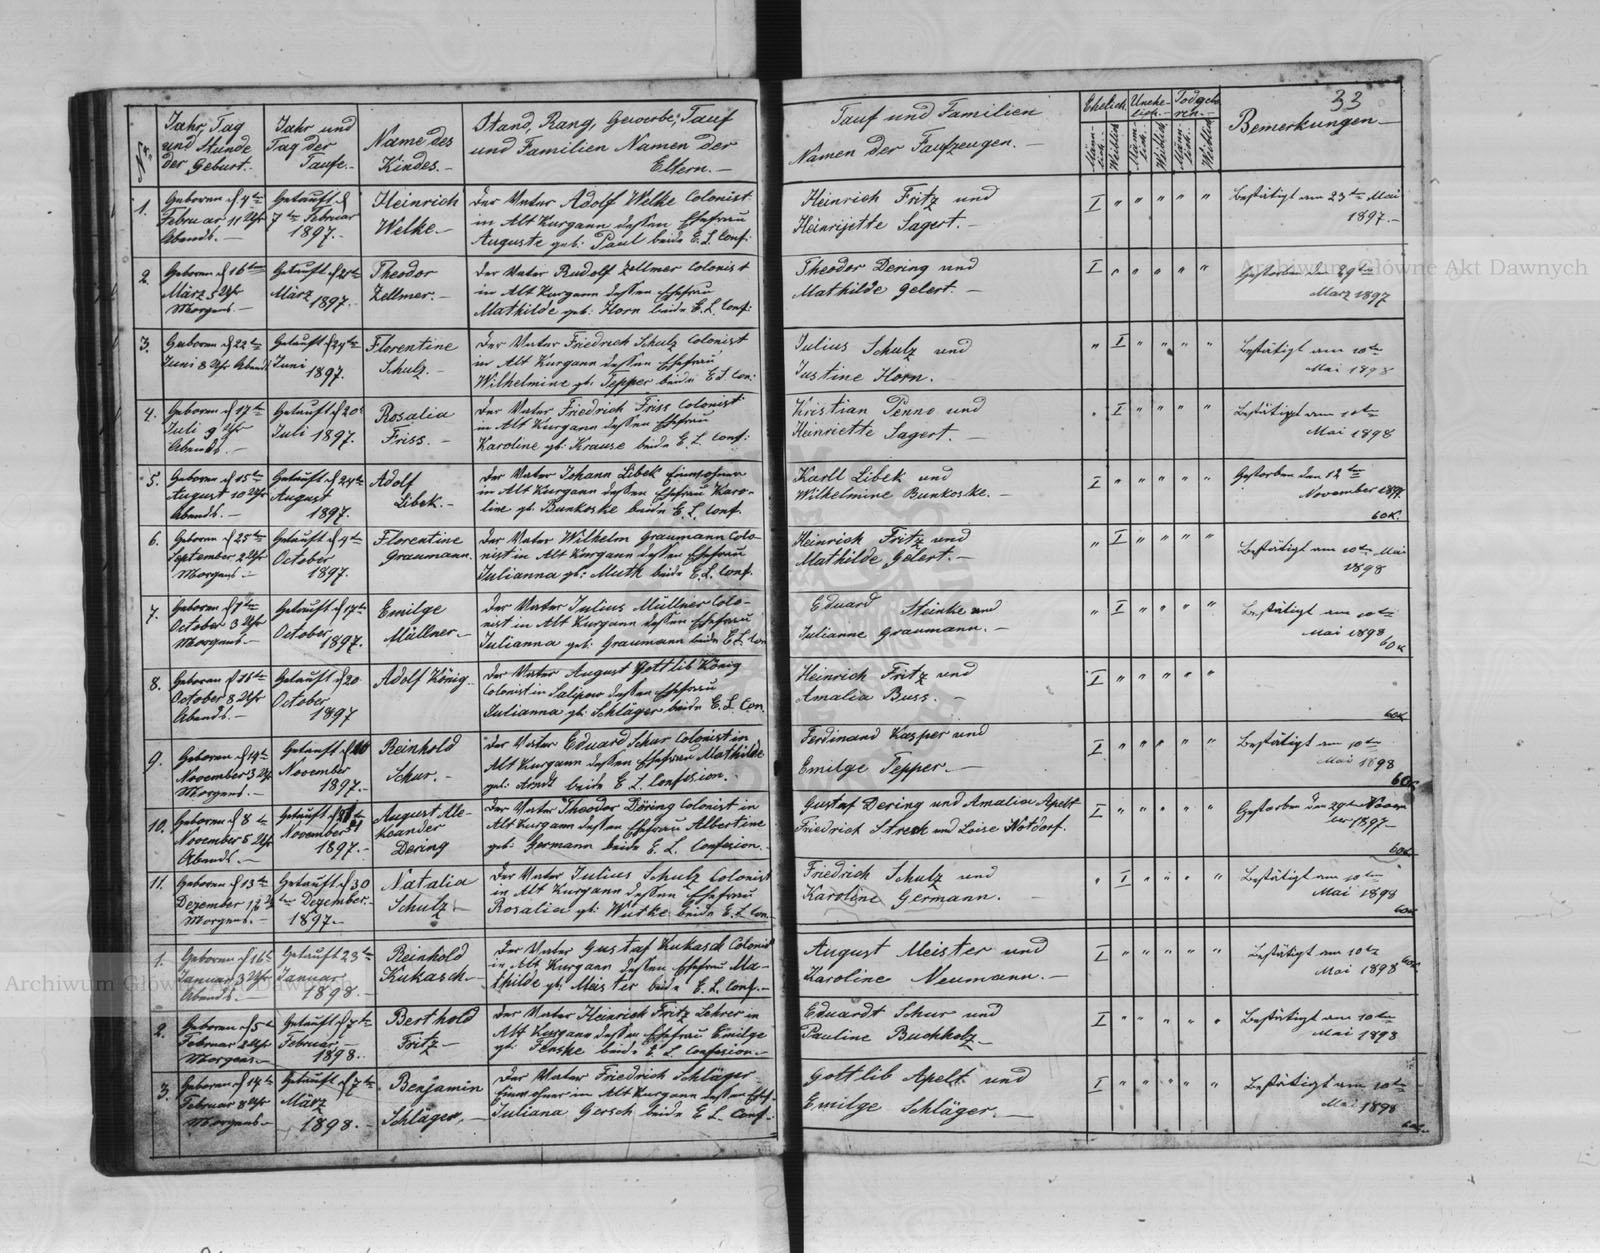 33
Nr.
Jahr, Tag
und Stunde
der Geburt.
Jahr und
Tag der
Taufe.
Name des
Kindes.
Stand, Rang, Gewerbe, Tauf
und Familien Namen der
Eltern.
Tauf und Familien
Namen der Taufzeugen.
Ehelich
Unehe-
lich.
Todgebo
ren.
Männ-
lich.
Weiblich
Männ-
lich.
Weiblich
Männ-
lich.
Weiblich
Bemerkungen
1.
Geboren d 4ten
Februar 11 Uhr
Abends.
Getauft d
7ten Februar
1897.
Heinrich
Welke
Der Vater Adolf Welke Colonist
in Alt Kurgann dessen Ehefrau
Auguste geb: Paul beide E. L. Conf:
Heinrich Fritz und
Heinrijette Sagert.
I " " " " "
Bestätigt am 23ten Mai
1897.
2.
Geboren d 16ten
März 5 Uhr
Morgens.
Getauft d 21ten
März 1897.
Theodor
Zellmer.
Der Vater Rudolf Zellmer Colonist
in Alt Kurgann dessen Ehefrau
Mathilde geb: Horn beide E. L. Conf:
Theodor Dering und
Mathilde Gelert.
I " " " " "
Gestorben den 29ten
März 1897
3.
Geboren d 22ten
Juni 8 Uhr Abends
Getauft d 29ten
Juni 1897.
Florentine
Schulz.
Der Vater Friedrich Schulz Colonist
in Alt Kurgann dessen Ehefrau
Wilhelmine gb: Tepper beide E L. Con:
Julius Schulz und
Justine Horn.
" I " " " "
Bestätigt am 10ten
Mai 1898
4.
Geboren d 17ten
Juli 9 Uhr
Abends.
Getauft d 20
Juli 1897.
Rosalia
Friss.
Der Vater Friedrich Friss Colonist
in Alt Kurgann dessen Ehefrau
Karoline gb: Krause beide E. L. Conf:
Kristian Penno und
Heinriette Sagert.
" I " " " "
Bestätigt am 10ten
Mai 1898
5.
Geboren d 15ten
August 10 Uhr
Abends.
Getauft d 24ten
August
1897.
Adolf
Libek.
Der Vater Johann Libek Einwohner
in Alt Kurgann dessen Ehefrau Karo-
line gb: Bunkoske beide E. L. Conf.
Karll Libek und
Wilhelmine Bunkoske.
I " " " " "
Gestorben den 12ten
November 1897.
60K.
6.
Geboren d 25ten
September 2 Uhr
Morgens
Getauft d 4ten
October
1897.
Florentine
Graumann.
Der Vater Wilhelm Graumann Colo-
nist in Alt Kurgann dessen Ehefrau
Julianna gb: Muth beide E. L. Conf.
Heinrich Fritz und
Mathilde Gelert.
" I " " " "
Bestätigt am 10ten Mai
1898
7.
Geboren d
October 3 Uhr
Morgens
Getauft d 17ten
October
1897.
Emilge
Müllner
Der Vater Julius Müllner Colo-
nist in Alt Kurgann dessen Ehefrau
Julianna geb: Graumann beide E. L. Con
Eduard Steinke und
Julianne Graumann.
" I " " " "
Bestätigt am 10ten
Mai 1898
60K
8.
Geboren d 16ten
October 8 Uhr
Abends.
Getauft d 20
October
1897
Adolf König.
Der Vater August Gottlib König
Colonist in Salipow dessen Ehefrau
Julianna gb: Schläger beide E. L. Con.
Heinrich Fritz und
Amalia Buss.
I " " " " "
60K
9.
Geboren d 14ten
November 3 Uhr
Morgens.
Getauft d
November
1897.
Reinhold
Schur.
Der Vater Eduard Schur Colonist in
Alt Kurgann dessen Ehefrau Mathilde
geb: Arndt beide E. L. Confesion.
Ferdinand Kasper und
Emilge Tepper.
I " " " " "
Bestätigt am 10ten
Mai 1898
60K
10.
Geboren d 8ten
November 5 Uhr
Abends.
Getauft d
November
1897.
August Ale-
kcander
Dering
Der Vater Theodor Döring Colonist in
Alt Kurgann dessen Ehefrau Albertine
geb: Germann beide E. L. Confesion.
Gustaf Dering und Amalia Apelt
Friedrich Streck und Loise Notdorf.
I " " " " "
Gestorben den 29ten Novem
ber 1897
60K
11.
Geboren d 13ten
Dezember 12 Uhr
Morgens.
Getauft d 30
ten Dezember.
1897.
Natalia
Schulz
Der Vater Julius Schulz Colonist
in Alt Kurgann dessen Ehefrau
Rosalia gb: Wutke beide E. L. Con.
Friedrich Schulz und
Karoline Germann.
" I " " " "
Bestätigt am 10ten
Mai 1898
60K
1.
Geboren d 16ten
Januar 3 Uhr
Abends.
Getauft 23ten
Januar
1898.
Reinhold
Kukasch.
Der Vater Gustaf Kukasch Colonist
in Alt Kurgann dessen Ehefrau Ma-
thilde gb: Meister beide E. L. Conf.
August Meister und
Karoline Neumann.
I " " " " "
Bestätigt am 10ten
Mai 1898 60K
2.
Geboren d 5ten
Februar 2 Uhr
Morgens
Getauft d 7ten
Februar.
1898.
Berthold
Fritz
Der Vater Heinrich Fritz Lehrer in
Alt Kurgann dessen Ehefrau Emilge
gb: Fenske beide E. L. Confesion.
Eduardt Schur und
Pauline Buchholz
I " " " " "
Bestätigt am 10ten
Mai 1898
3.
Geboren d 14ten
Februar 8 Uhr
Morgens
Getauft d 7ten
März
1898.
Benjamin
Schläger,
Der Vater Friedrich Schläger
Einwohner in Alt Kurgann dessen Ehef.
Juliana Gersch beide E L. Conf.
Gottlib Apelt und
Emilge Schläger.
I " " " " "
Bestätigt am 10ten
Mai 1898
60K.
Archiwum Główne Akt Dawnych
Archiwum Główne Akt Dawnych